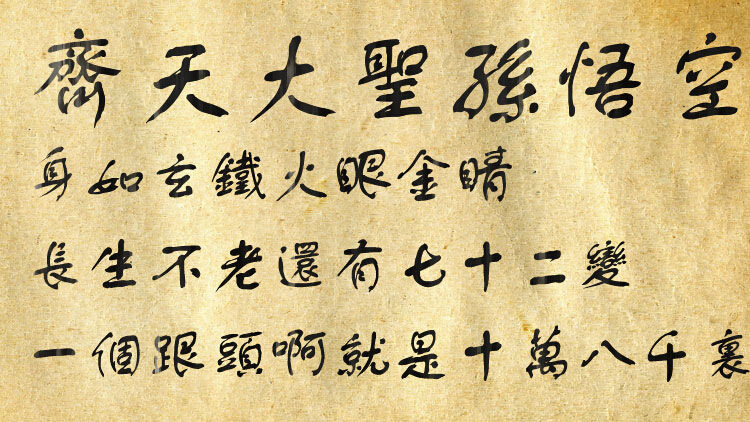 齊天大聖孫悟空
身如玄鐵火眼金睛
長生不老還有七十二變
一個跟頭啊就是十萬八千裏